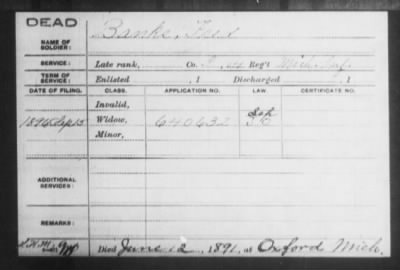 DEAD
NAME OF SOLDIER: Banks,
SERVICE: Late rank, Co. Reg't Mich. Inf.
TERM OF SERVICE: Enlisted , 1 Discharged , 1
DATE OF FILING. CLASS. APPLICATION NO. LAW. CERTIFICATE NO.
Invalid,
1896 Sep 15 Widow, 640632
Minor,
ADDITIONAL SERVICES:
REMARKS:
Died June 12, 1891, at Oxford Mich.